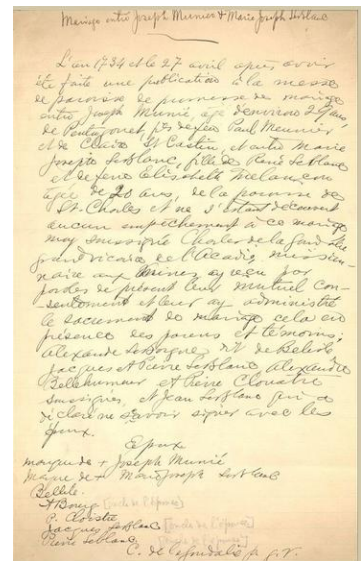 Mariage entre Joseph Munier & Marie Joseph LeBlanc
L'an 1734 et le 27 avril apres avoir
été faite une publication à la messe
de paroisse de promesse de mariage
entre Joseph Munié, age d'environ 29 ans,
de Pentagouet, fils de feu Paul Meunier
et de Claire St Castin, et entre Marie
Josephe LeBlanc, fille de René LeBlanc
et de feue Elisabeth Melançon
agée de 20 ans, de la paroisse de
St. Charles et ne s'étant découvert
aucun empêchement à ce mariage
moy soussigné Charles de la
grand vicaire de l'Acadie, mission-
naire aux mines, ay reçu par
paroles de présent leur mutuel con-
sentement et leur ay administré
le sacrement de mariage cela en
présence des parens et témoins;
Alexandre LeBorgne, de Belisle
Jacques et Pierre LeBlanc, Alexandre
Belhumeur et Pierre Clouatre
soussignés, et Jean LeBlanc qui a
déclaré ne savoir signer avec les
époux.
Epoux
marque de + Joseph Munié
Marque de + Marie Joseph LeBlanc
Bellile.
P. Cloistre
Jacques LeBlanc [oncle de l'épouse]
Pierre Leblanc
C. de p. g. v.